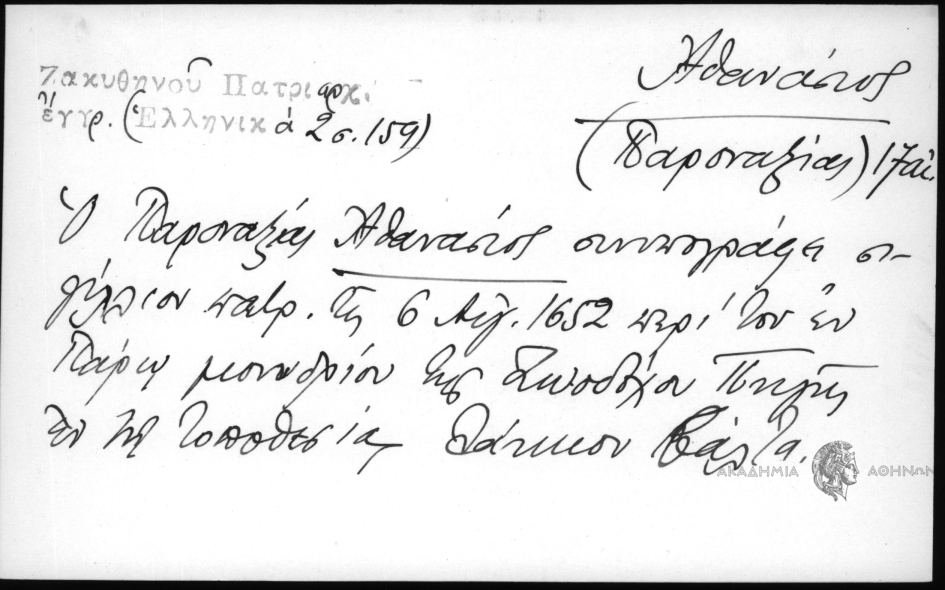 Ζακυθηνοῦ Πατριαρχ.
ἔγγρ. (Ἑλληνικά 2 σ. 159)
Ἀθανάσιος
(Παροναξίας) 17 αἰ.
Ὁ Παροναξίας Ἀθανάσιος συνυπογράφει σι-
γίλλιον πατρ. τῆς 6 Αὐγ. 1652 περί τοῦ ἐν
Πάρῳ μονυδρίου τῆς Ζωοδόχου Πηγῆς
ἐν τῇ τοποθεσίᾳ Βάλτα.
ΑΚΑΔΗΜΙΑ ΑΘΗΝΩΝ